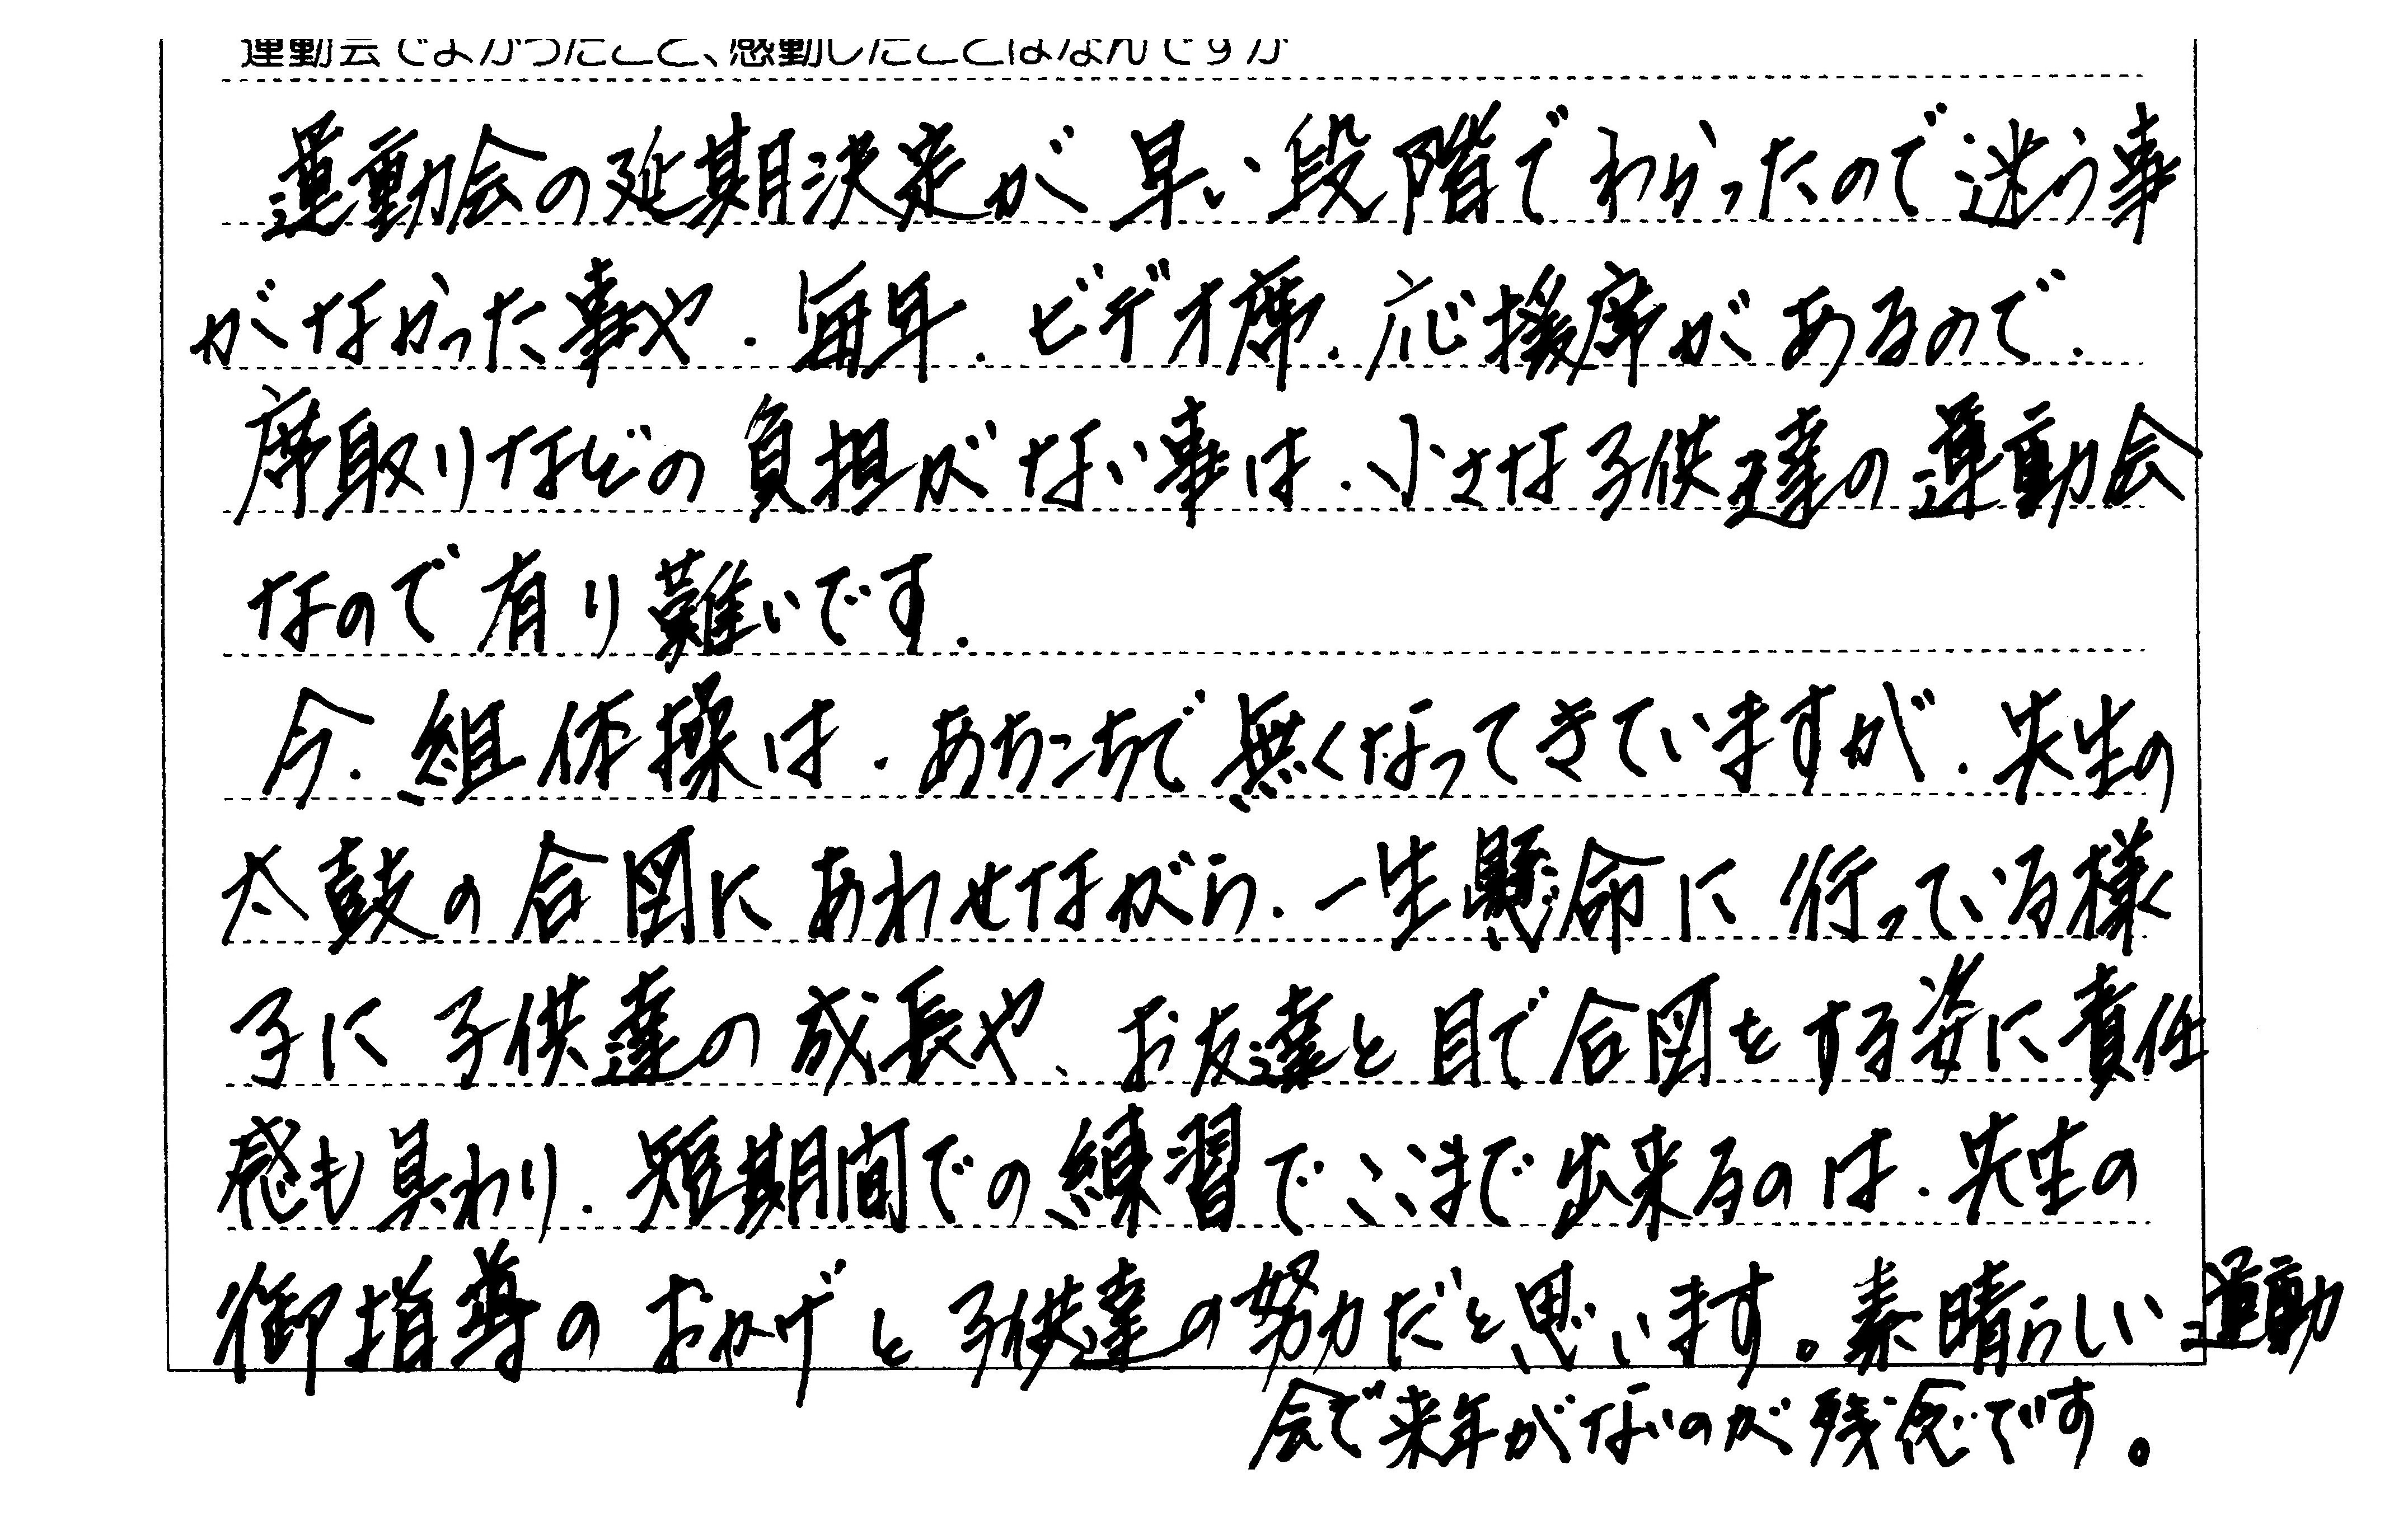 運動会でよかったこと、感動したことはなんですか
運動会の延期決定が早い段階でわかったので迷う事
がなかった事や、毎年、ビデオ席、応援席があるので、
席取りなどの負担がない事は、小さな子供達の運動会
なので有り難いです。
今、組体操は、あちこちで無くなってきていますが、先生の
太鼓の合図にあわせながら、一生懸命に行っている様
子に子供達の成長や、お友達と目で合図をする姿に責任
感も具わり、短期間での練習でここまで出来るのは、先生の
御指導のおかげと子供達の努力だと思います。素晴らしい運動
会で来年がないのが残念です。